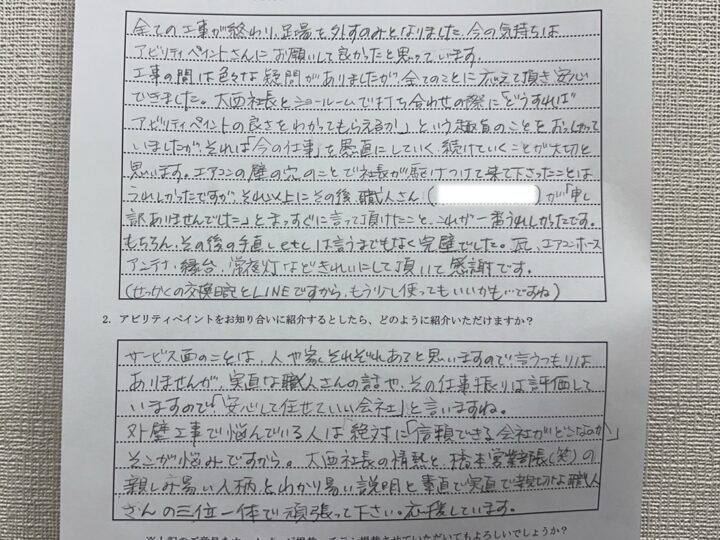 全ての工事が終わり、足場を外すのみとなりました。今の気持ちは
アビリティペイントさんにお願いして良かったと思っています。
工事の間は色々な疑問がありましたが、全てのことに応えて頂き安心
できました。大西社長とショールームで打ち合わせの際に「どうすれば
アビリティペイントの良さをわかってもらえるか」という趣旨のことをおっしゃって
いましたが、それは「今の仕事」を愚直にしていく、続けていくことが大切と
思います。エアコンの壁の穴のことで社長が駆けつけて来て下さったことは
うれしかったですが、それ以上にその後、職人さん(　)が「申し
訳ありませんでした」とまっすぐに言って頂けたこと、これが一番うれしかったです。
もちろん、その後の手直しetcは言うまでもなく完璧でした。瓦、エアコンホース
アンテナ、縁台、常夜灯などきれいにして頂いて感謝です。
(せっかくの交換日記とLINEですから、もう少し使ってもいいかも…ですね)
2. アビリティペイントをお知り合いに紹介するとしたら、どのように紹介いただけますか？
サービス面のことは、人や家、それぞれあると思いますので言うつもりは
ありませんが、実直な職人さんの話や、その仕事振りは評価して
いますので「安心して任せていい会社」と言いますね。
外壁工事で悩んでいる人は絶対に「信頼できる会社がどこなのか」
そこが悩みですから。大西社長の情熱と、橋本営業部長(笑)の
親しみ易い人柄とわかり易い説明と素直で実直で親切な職人
さんの三位一体で頑張って下さい。応援しています。